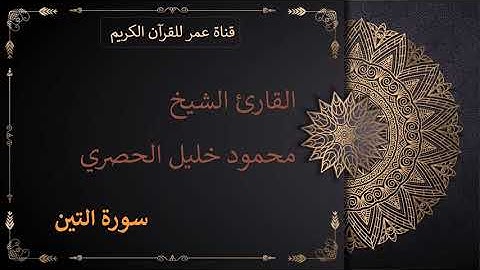 قناة عمر للقرآن الكريم
القارئ الشيخ
محمود خليل الحصري
سورة التين